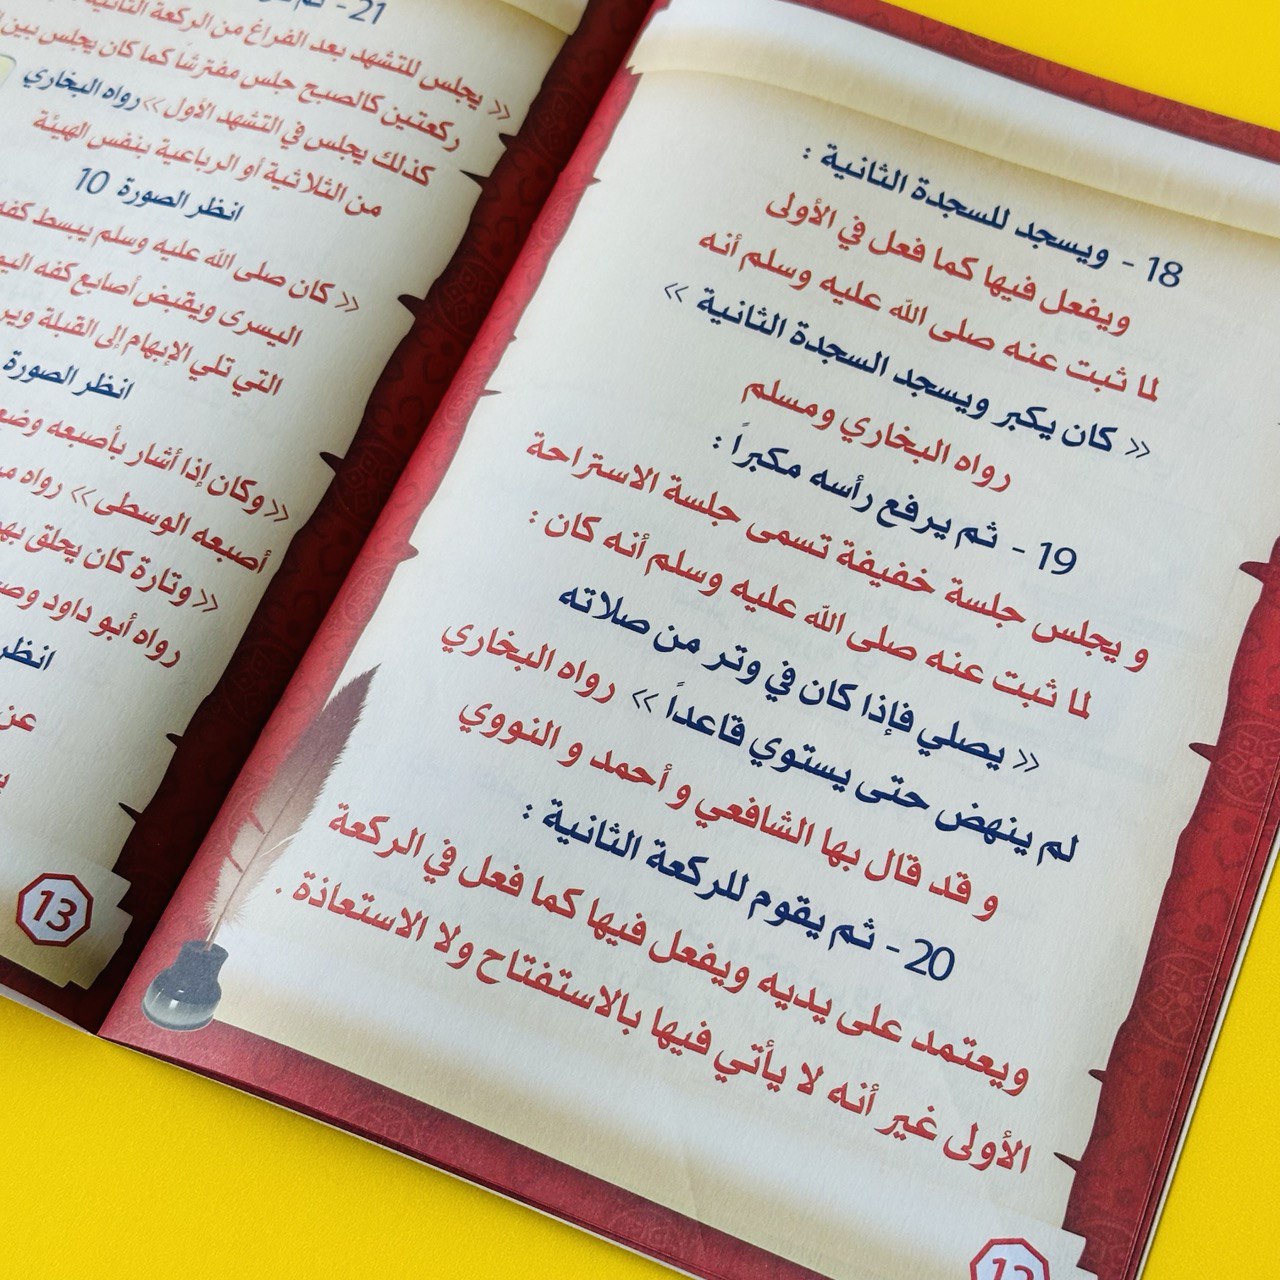 18 - ويسجد للسجدة الثانية :
ويفعل فيها كما فعل في الأولى
لما ثبت عنه صلى الله عليه وسلم أنه
« كان يكبر ويسجد السجدة الثانية »
رواه البخاري ومسلم
19 - ثم يرفع رأسه مكبراً :
و يجلس جلسة خفيفة تسمى جلسة الاستراحة
لما ثبت عنه صلى الله عليه وسلم أنه كان :
« يصلي فإذا كان في وتر من صلاته
لم ينهض حتى يستوي قاعداً » رواه البخاري
و قد قال بها الشافعي و أحمد و النووي
20 - ثم يقوم للركعة الثانية :
ويعتمد على يديه ويفعل فيها كما فعل في الركعة
الأولى غير أنه لا يأتي فيها بالاستفتاح ولا الاستعاذة .
12
21 - ثم
« يجلس للتشهد بعد الفراغ من الركعة الثانية
ركعتين كالصبح جلس مفترشاً كما كان يجلس بين
كذلك يجلس في التشهد الأول » رواه البخاري
من الثلاثية أو الرباعية بنفس الهيئة
انظر الصورة 10
« كان صلى الله عليه وسلم يبسط كفه
اليسرى ويقبض أصابع كفه
التي تلي الإبهام إلى القبلة
انظر الصورة
« وكان إذا أشار بأصبعه
أصبعه الوسطى » رواه
« وتارة كان يحلق
رواه أبو داود
انظر
عن
13